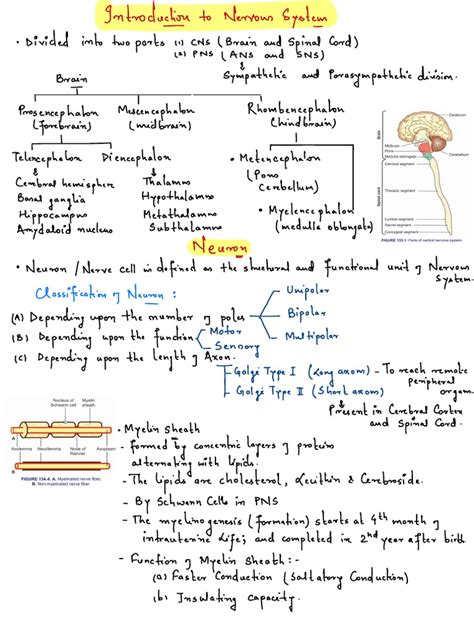 Introduction to Nervous System
• Divided into two parts (1) CNS (Brain and Spinal Cord)
(2) PNS (ANS and SNS)
Sympathetic and Parasympathetic division.
Brain
Prosencephalon (forebrain)
Mescencephalon (midbrain)
Rhombencephalon (hindbrain)
Telencephalon
Diencephalon
• Metencephalon (Pons Cerebellum)
Cerebral hemisphere
Basal ganglia
Hippocampus
Amydaloid nucleus
Thalamus
Hypothalamus
Metathalamus
Subthalamus
• Myelencephalon (medulla oblongata)
Brain
Spinal cord
Cerebrum
Midbrain
Pons
Medulla oblongata
Cerebellum
Cervical segment
Thoracic segment
Lumbar segment
Sacral segment
Coccygeal segment
FIGURE 133.1: Parts of central nervous system
Neuron
• Neuron / Nerve cell is defined as the structural and functional unit of Nervous System.
Classification of Neuron :
(A) Depending upon the number of poles
Unipolar
Bipolar
Multipolar
(B) Depending upon the function
Motor
Sensory
(C) Depending upon the length of Axon.
Golgi Type I (Long axom) - To reach remote peripheral organ.
Golgi Type II (Short axom)
Present in Cerebral Cortex and Spinal Cord.
Nucleus of Schwann cell
Myelin sheath
A
Axolemma
Neurilemma
Node of Ranvier
Axoplasm
B
FIGURE 134.4: A. Myelinated nerve fiber.
B. Non-myelinated nerve fiber.
• Myelin sheath
- formed by concentric layers of proteins
alternating with lipids.
- The lipids are cholesterol, Lecithin & Cerebroside.
- By Schwann Cells in PNS
- The myelinogenesis (formation) starts at 4th month of
intrauterine life; and completed in 2nd year after birth
- Function of Myelin Sheath :-
(a) Faster Conduction (Saltatory Conduction)
(b) Insulating capacity.